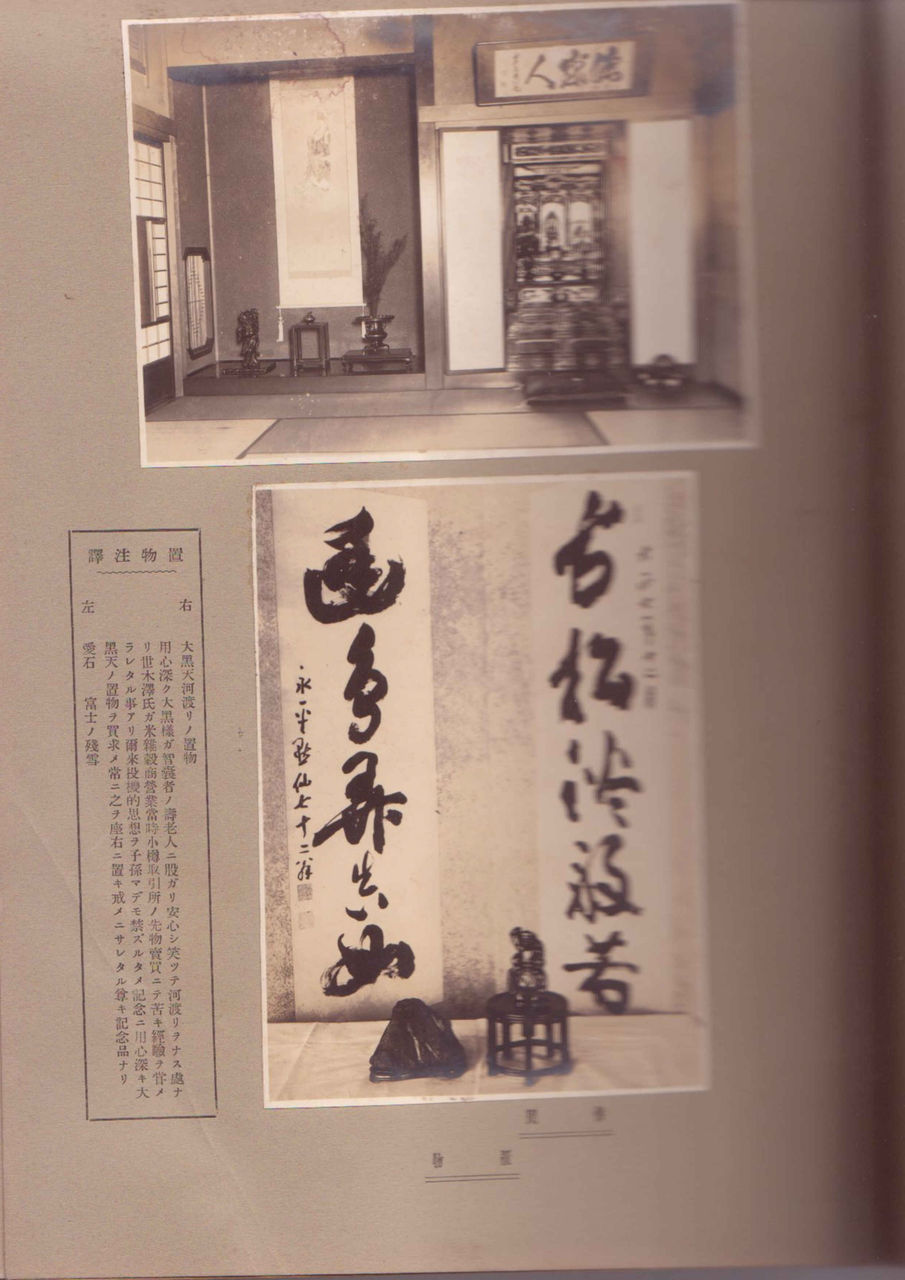 人
古松淡般若
幽鳥弄真如
永平默仙七十二翁
置物注譯
右
大黑天河渡リノ置物
用心深ク大黑樣ガ智囊者ノ壽老人ニ股ガリ安心シ笑ツテ河渡リヲナス處ナ
リ世木澤氏ガ米雜穀商營業當時小樽取引所ノ先物賣買ニテ苦キ經驗ヲ甞メ
ラレタル事アリ爾来投機的思想ヲ子孫マデモ禁ズルタメ記念ニ用心深キ大
黑天ノ置物ヲ買求メ常ニ之ヲ座右ニ置キ戒メニサレタル尊キ記念品ナリ
左
愛石　富士ノ殘雪
置物